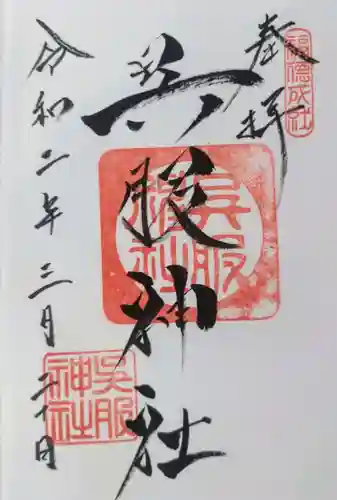 奉拝
福徳成社
呉服神社
呉服神社
令和二年三月二十日
呉服神社